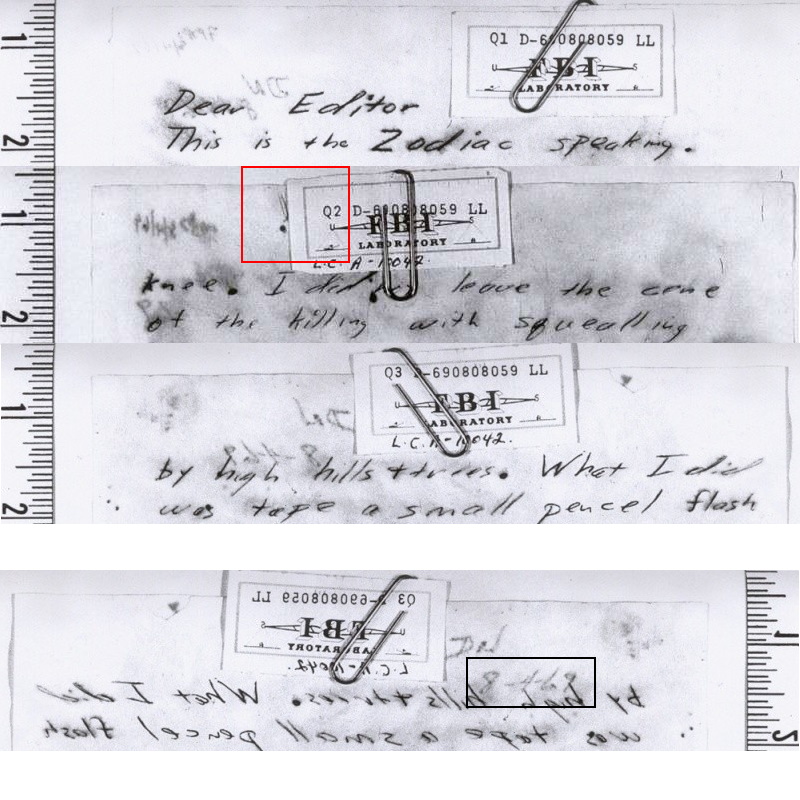 1
2
Q1 D-690808059 LL
U S
FBI
LABORATORY
Dear Editor
This is the Zodiac speaking.
1
2
Q2 D-690808059 LL
U S
FBI
LABORATORY
L.C. A-10042
knee. I did leave the cene
of the killing with squealling
1
2
Q3 D-690808059 LL
U S
FBI
LABORATORY
L.C. A-10042.
by high hills + trees. What I did
was tape a small pencel flash
1
2
Q3 D-690808059 LL
U S
FBI
LABORATORY
L.C. A-10042.
by high hills + trees. What I did
was tape a small pencel flash